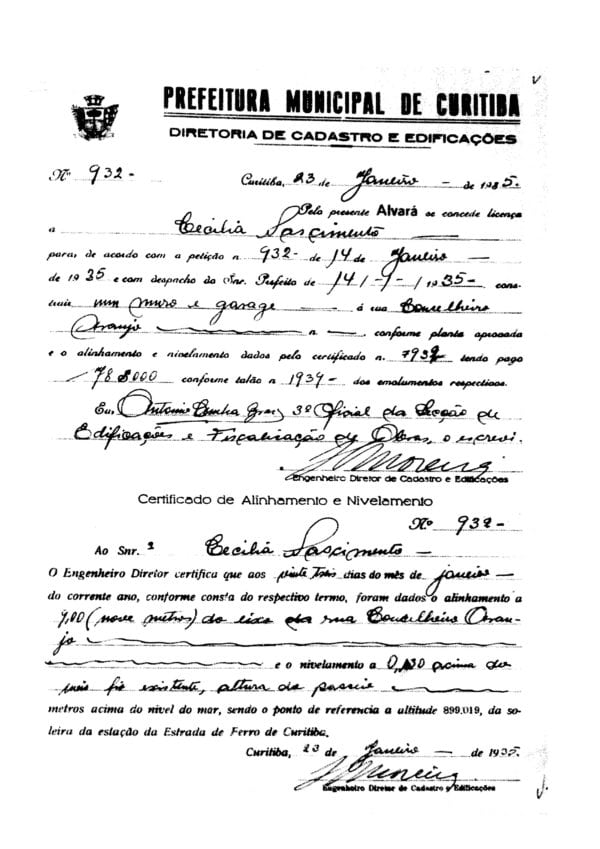 PREFEITURA MUNICIPAL DE CURITIBA
DIRETORIA DE CADASTRO E EDIFICAÇÕES
Nº 932- Curitiba, 23 de Janeiro - de 1935.
Pelo presente Alvará se concede licença
a Cecilia Nascimento
para, de acordo com a petição n. 932- de 14 de Janeiro
de 1935 e com despacho do Snr. Prefeito de 14/-1-/1935- cons-
truir um muro e garage - á rua Conselheiro
Araujo n -, conforme planta aprovada
e o alinhamento e nivelamento dados pelo certificado n. 932 tendo pago
78$000 conforme talão n 1939- dos emolumentos respectivos.
Eu, Antonio Cunha 3º Oficial da Secção de
Edificações e Fiscalização de Obras, o escrevi.
Moreira
Engenheiro Diretor de Cadastro e Edificações
Certificado de Alinhamento e Nivelamento
Nº 932-
Ao Snr. ª Cecilia Nascimento
O Engenheiro Diretor certifica que aos vinte tres dias do mês de janeiro
do corrente ano, conforme consta do respectivo termo, foram dados o alinhamento a
9,00 (nove metros) do eixo da rua Conselheiro Arau-
jo
e o nivelamento a acima do
meio fio existente, altura do passeio
metros acima do nivel do mar, sendo o ponto de referencia a altitude 899,019, da so-
leira da estação da Estrada de Ferro de Curitiba.
Curitiba, 23 de Janeiro - de 1935.
Moreira
Engenheiro Diretor de Cadastro e Edificações